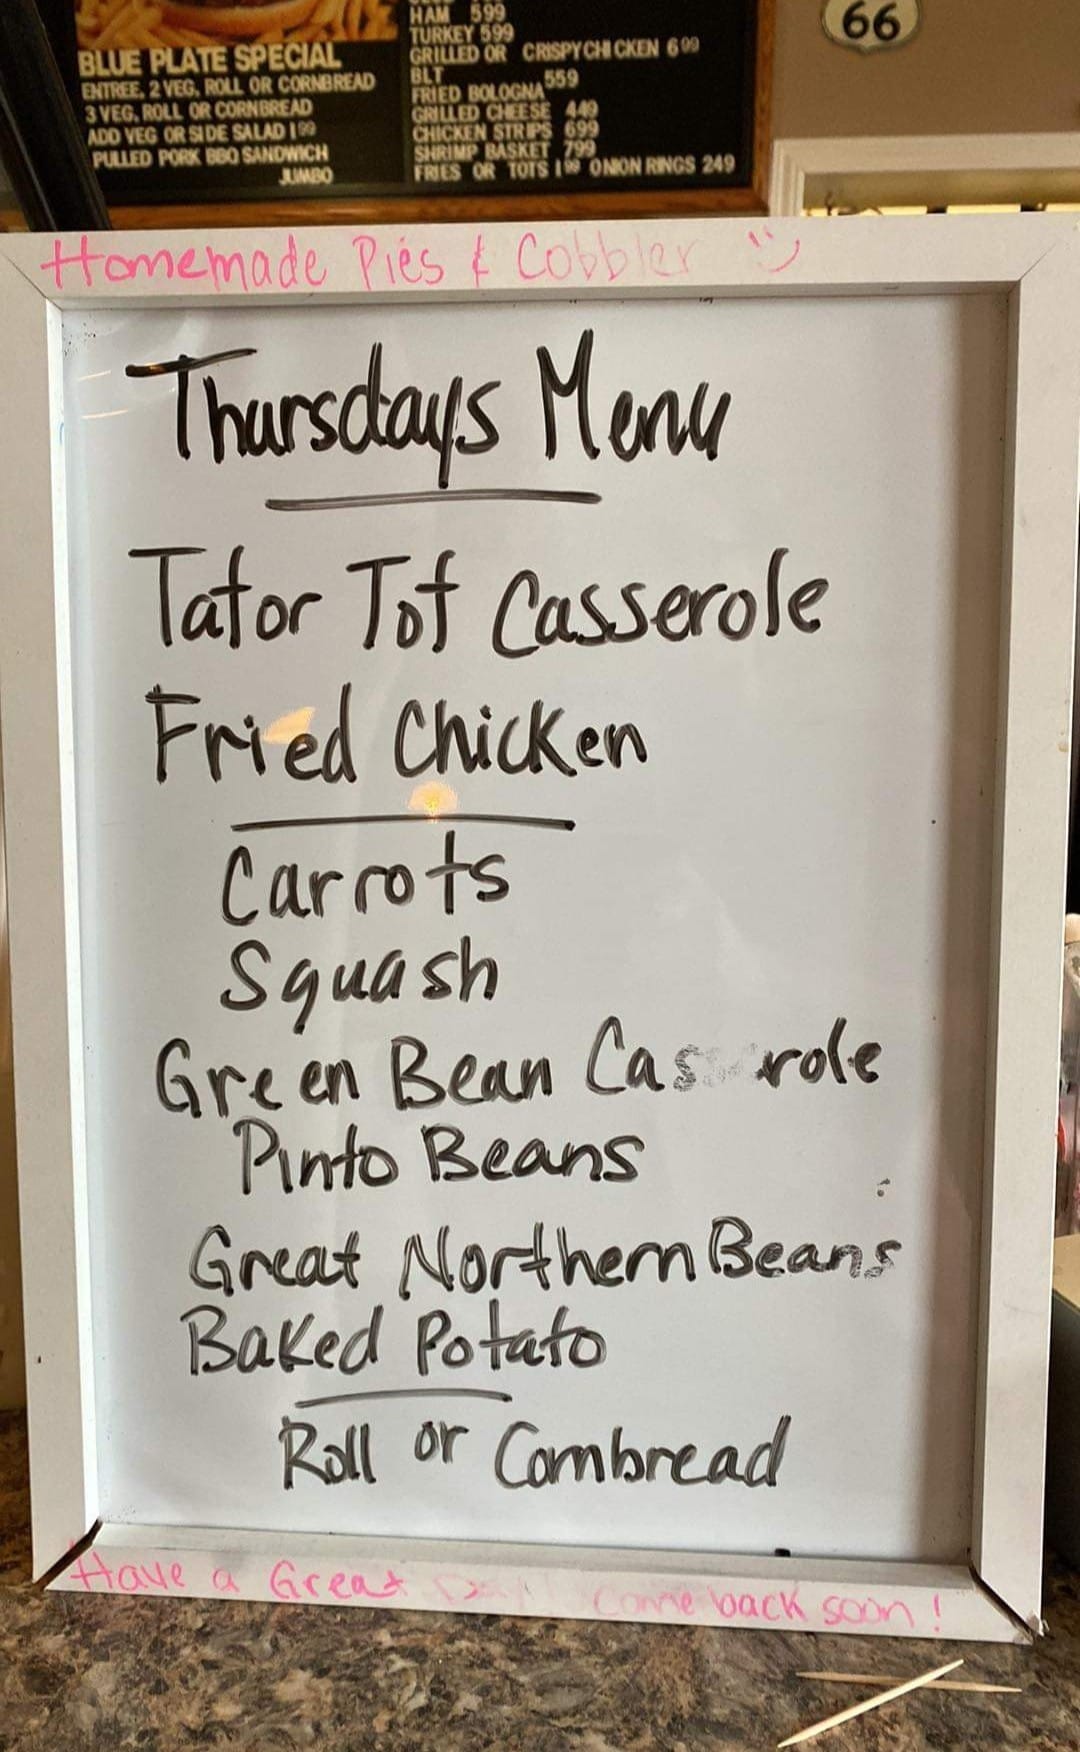 HAM 599
TURKEY 599
GRILLED OR CRISPY CHICKEN 699
BLT 559
FRIED BOLOGNA
GRILLED CHEESE 449
CHICKEN STRIPS 699
SHRIMP BASKET 799
FRIES OR TOTS 199 ONION RINGS 249
BLUE PLATE SPECIAL
ENTREE, 2 VEG, ROLL OR CORNBREAD
3 VEG, ROLL OR CORNBREAD
ADD VEG OR SIDE SALAD 199
PULLED PORK BBQ SANDWICH
JUMBO
66
Homemade Pies & Cobbler
Thursdays Menu
Tator Tot Casserole
Fried Chicken
Carrots
Squash
Green Bean Cas role
Pinto Beans
Great Northern Beans
Baked Potato
Roll or Cornbread
Have a Great Day! Come back soon!